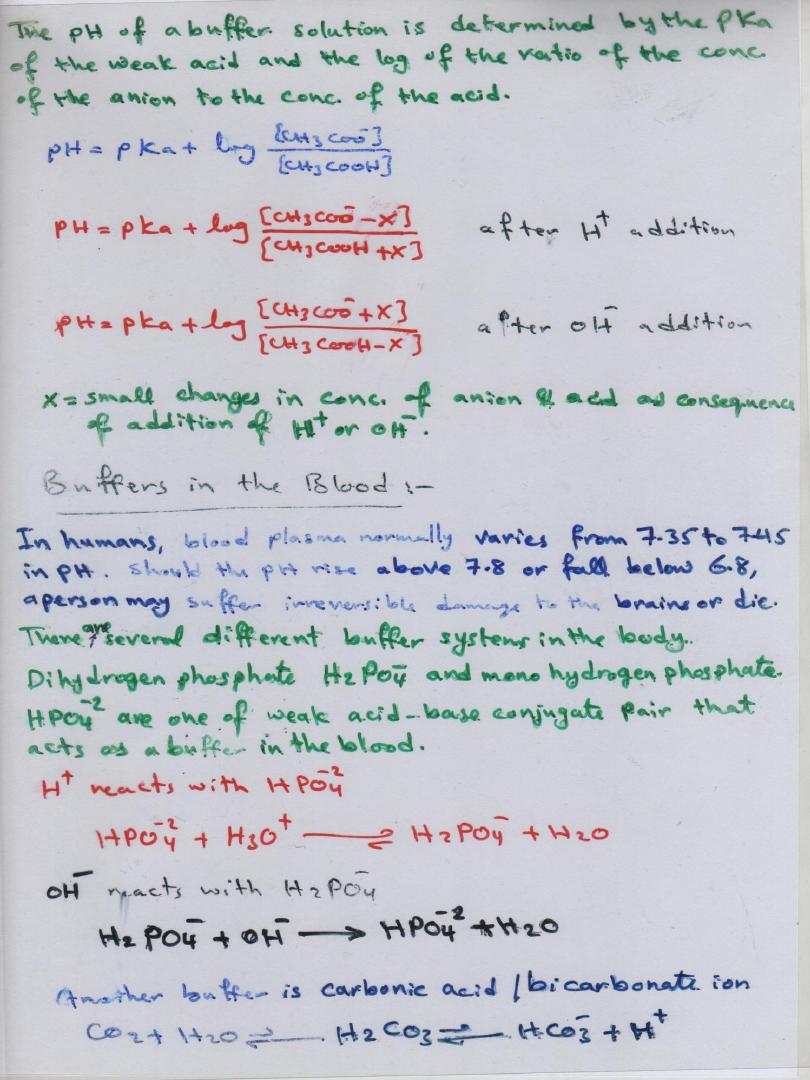 The pH of a buffer solution is determined by the PKa
of the weak acid and the log of the ratio of the conc.
of the anion to the conc. of the acid.
pH = pKa + log [CH3COO⁻] / [CH3COOH]
PH = pKa + log [CH3COO⁻ - X] / [CH3COOH + X] after H⁺ addition
PH = pka + log [CH3COO⁻ + X] / [CH3COOH - X] after OH⁻ addition
X = small changes in conc. of anion & acid as consequence
of addition of H⁺ or OH⁻.
Buffers in the Blood :-
In humans, blood plasma normally varies from 7.35 to 7.45
in pH. Should the pH rise above 7.8 or fall below 6.8,
a person may suffer irreversible damage to the brains or die.
There are several different buffer systems in the body.
Dihydrogen phosphate H2PO4⁻ and mono hydrogen phosphate.
HPO4⁻² are one of weak acid-base conjugate pair that
acts as a buffer in the blood.
H⁺ reacts with HPO4⁻²
HPO4⁻² + H3O⁺ ⇌ H2PO4⁻ + H2O
OH⁻ reacts with H2PO4⁻
H2PO4⁻ + OH⁻ → HPO4⁻² + H2O
Another buffer is carbonic acid / bicarbonate ion
CO2 + H2O ⇌ H2CO3 ⇌ HCO3⁻ + H⁺